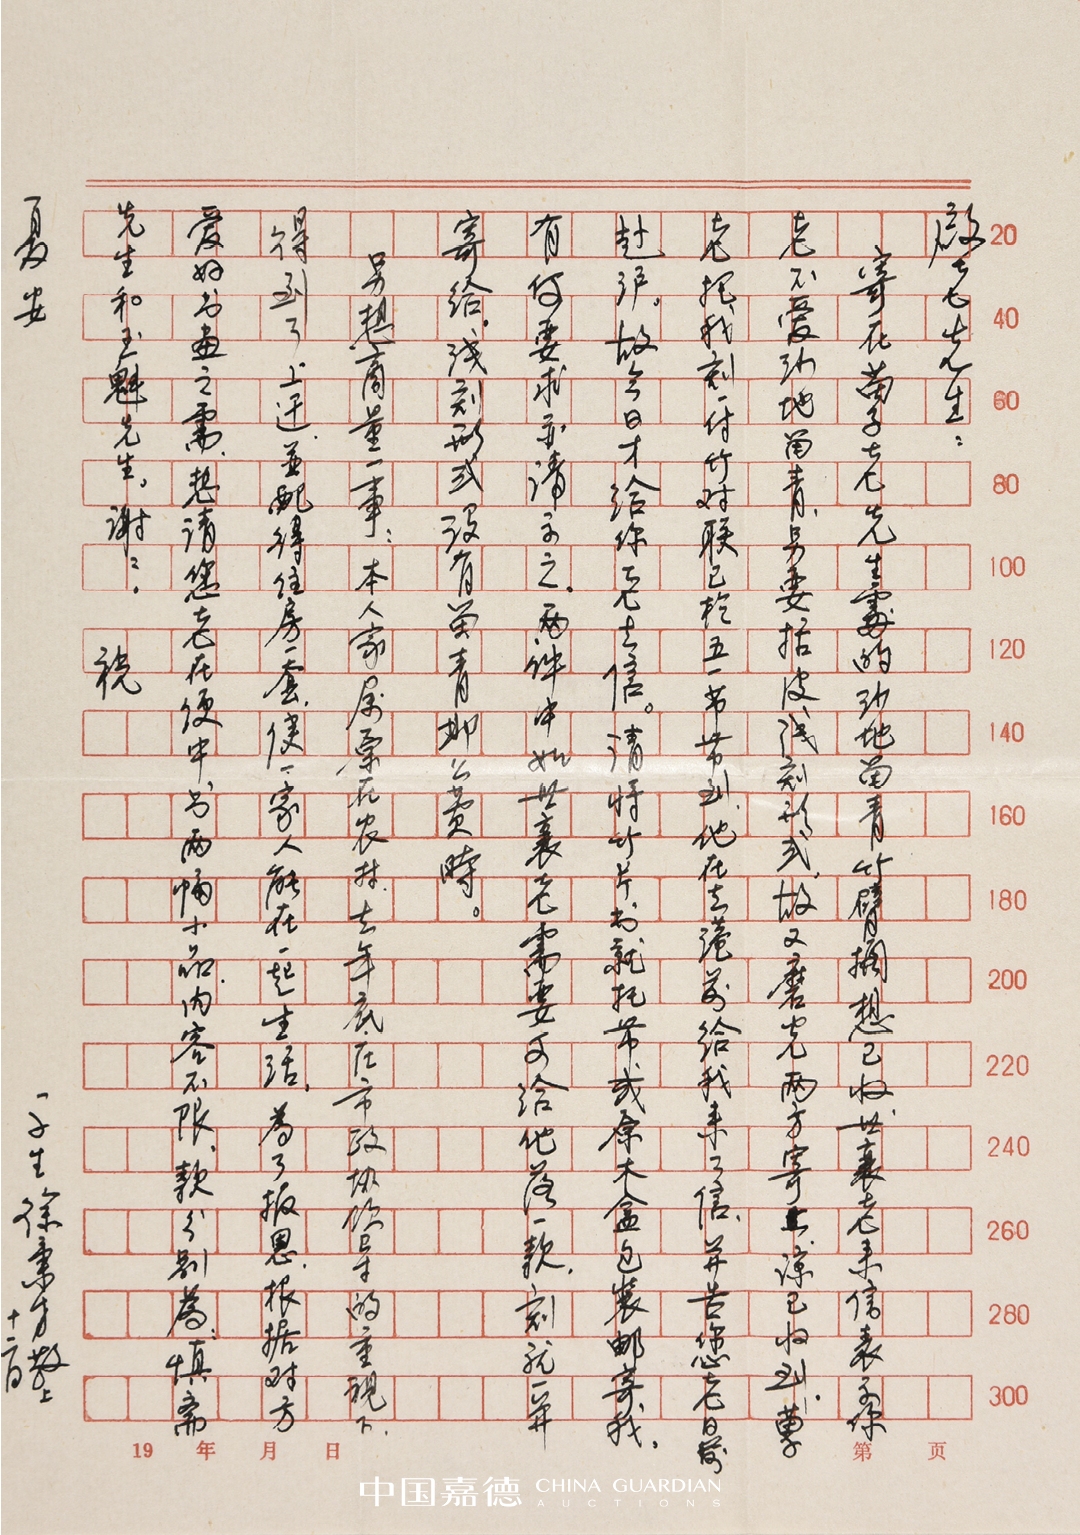 启老先生：
寄在苗子老先生处的沙地留青竹臂搁想已收。世襄老来信表示你
老不爱沙地留青，另要括皮浅刻形式，故又磨光两方寄上谅已收到，
老托我刻一付竹对联已於五一节带到，他在去港前给我来了信，并告您老日前
赴沪。故今日才给你老去信。请将竹片书就托带或原木盒包装邮寄我。
有何要求亦请示之。两件中如世襄老需要可给他落一款，刻就一并
寄给。浅刻形式没有留青那么费时。
另想商量一事：本人家属原在农村，去年底在市政协领导的重视下，
得到了上迁并配得住房一套，使一家人能在一起生活，为了报恩，根据对方
爱好书画之需，想请您老在便中书两幅小品，内容不限，款分别为：慎斋
先生和玉魁先生。谢谢。祝
夏安
生徐秉方敬上
十二日
20
40
60
80
100
120
140
160
180
200
220
240
260
280
300
19 年 月 日
第 页
中国嘉德 CHINA GUARDIAN
AUCTIONS